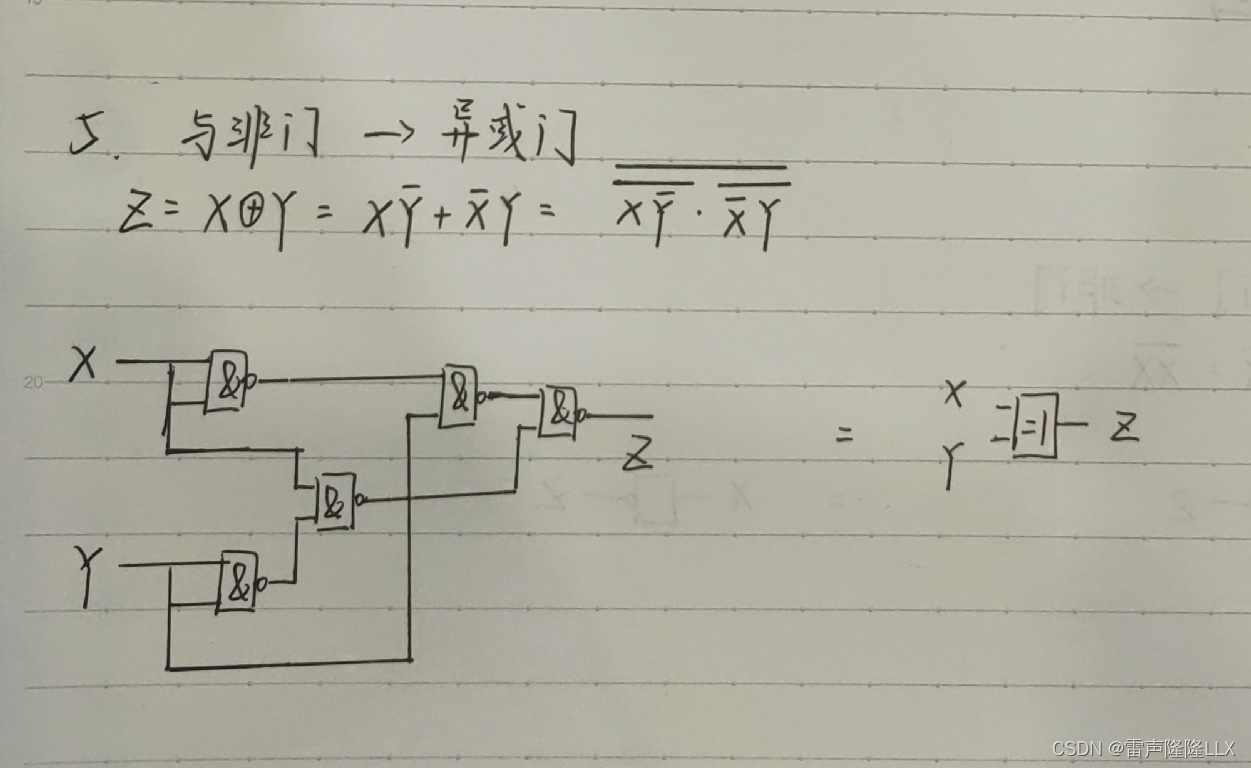 5. 与非门 → 异或门
Z = X⊕Y = XȲ + X̄Y = \overline{\overline{\overline{XȲ} · \overline{X̄Y}}}
X
&
&
&
Z
&
Y
&
=
X
Y
=1
Z
20
CSDN @雷声隆隆LLX